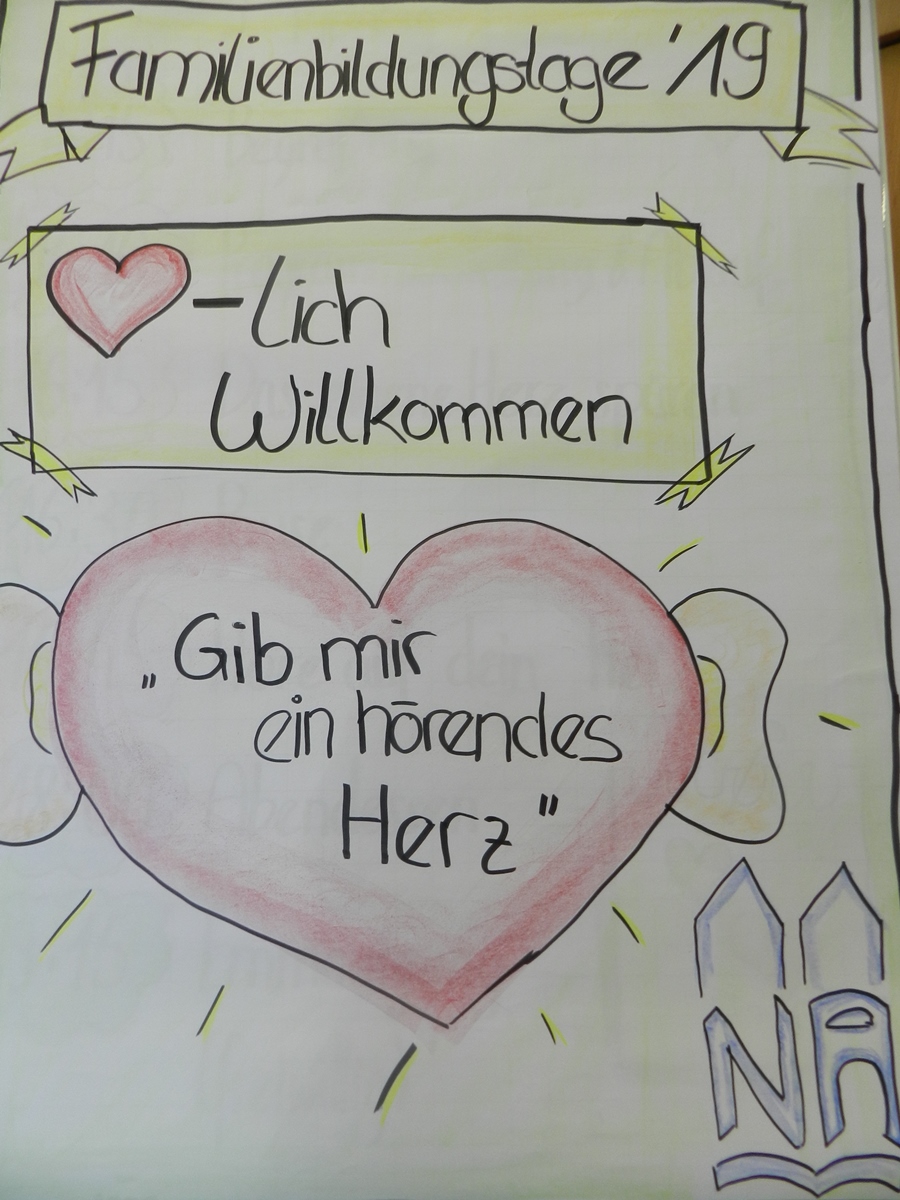 Familienbildungstage '19
-lich
Willkommen
„Gib mir
ein hörendes
Herz"
NA